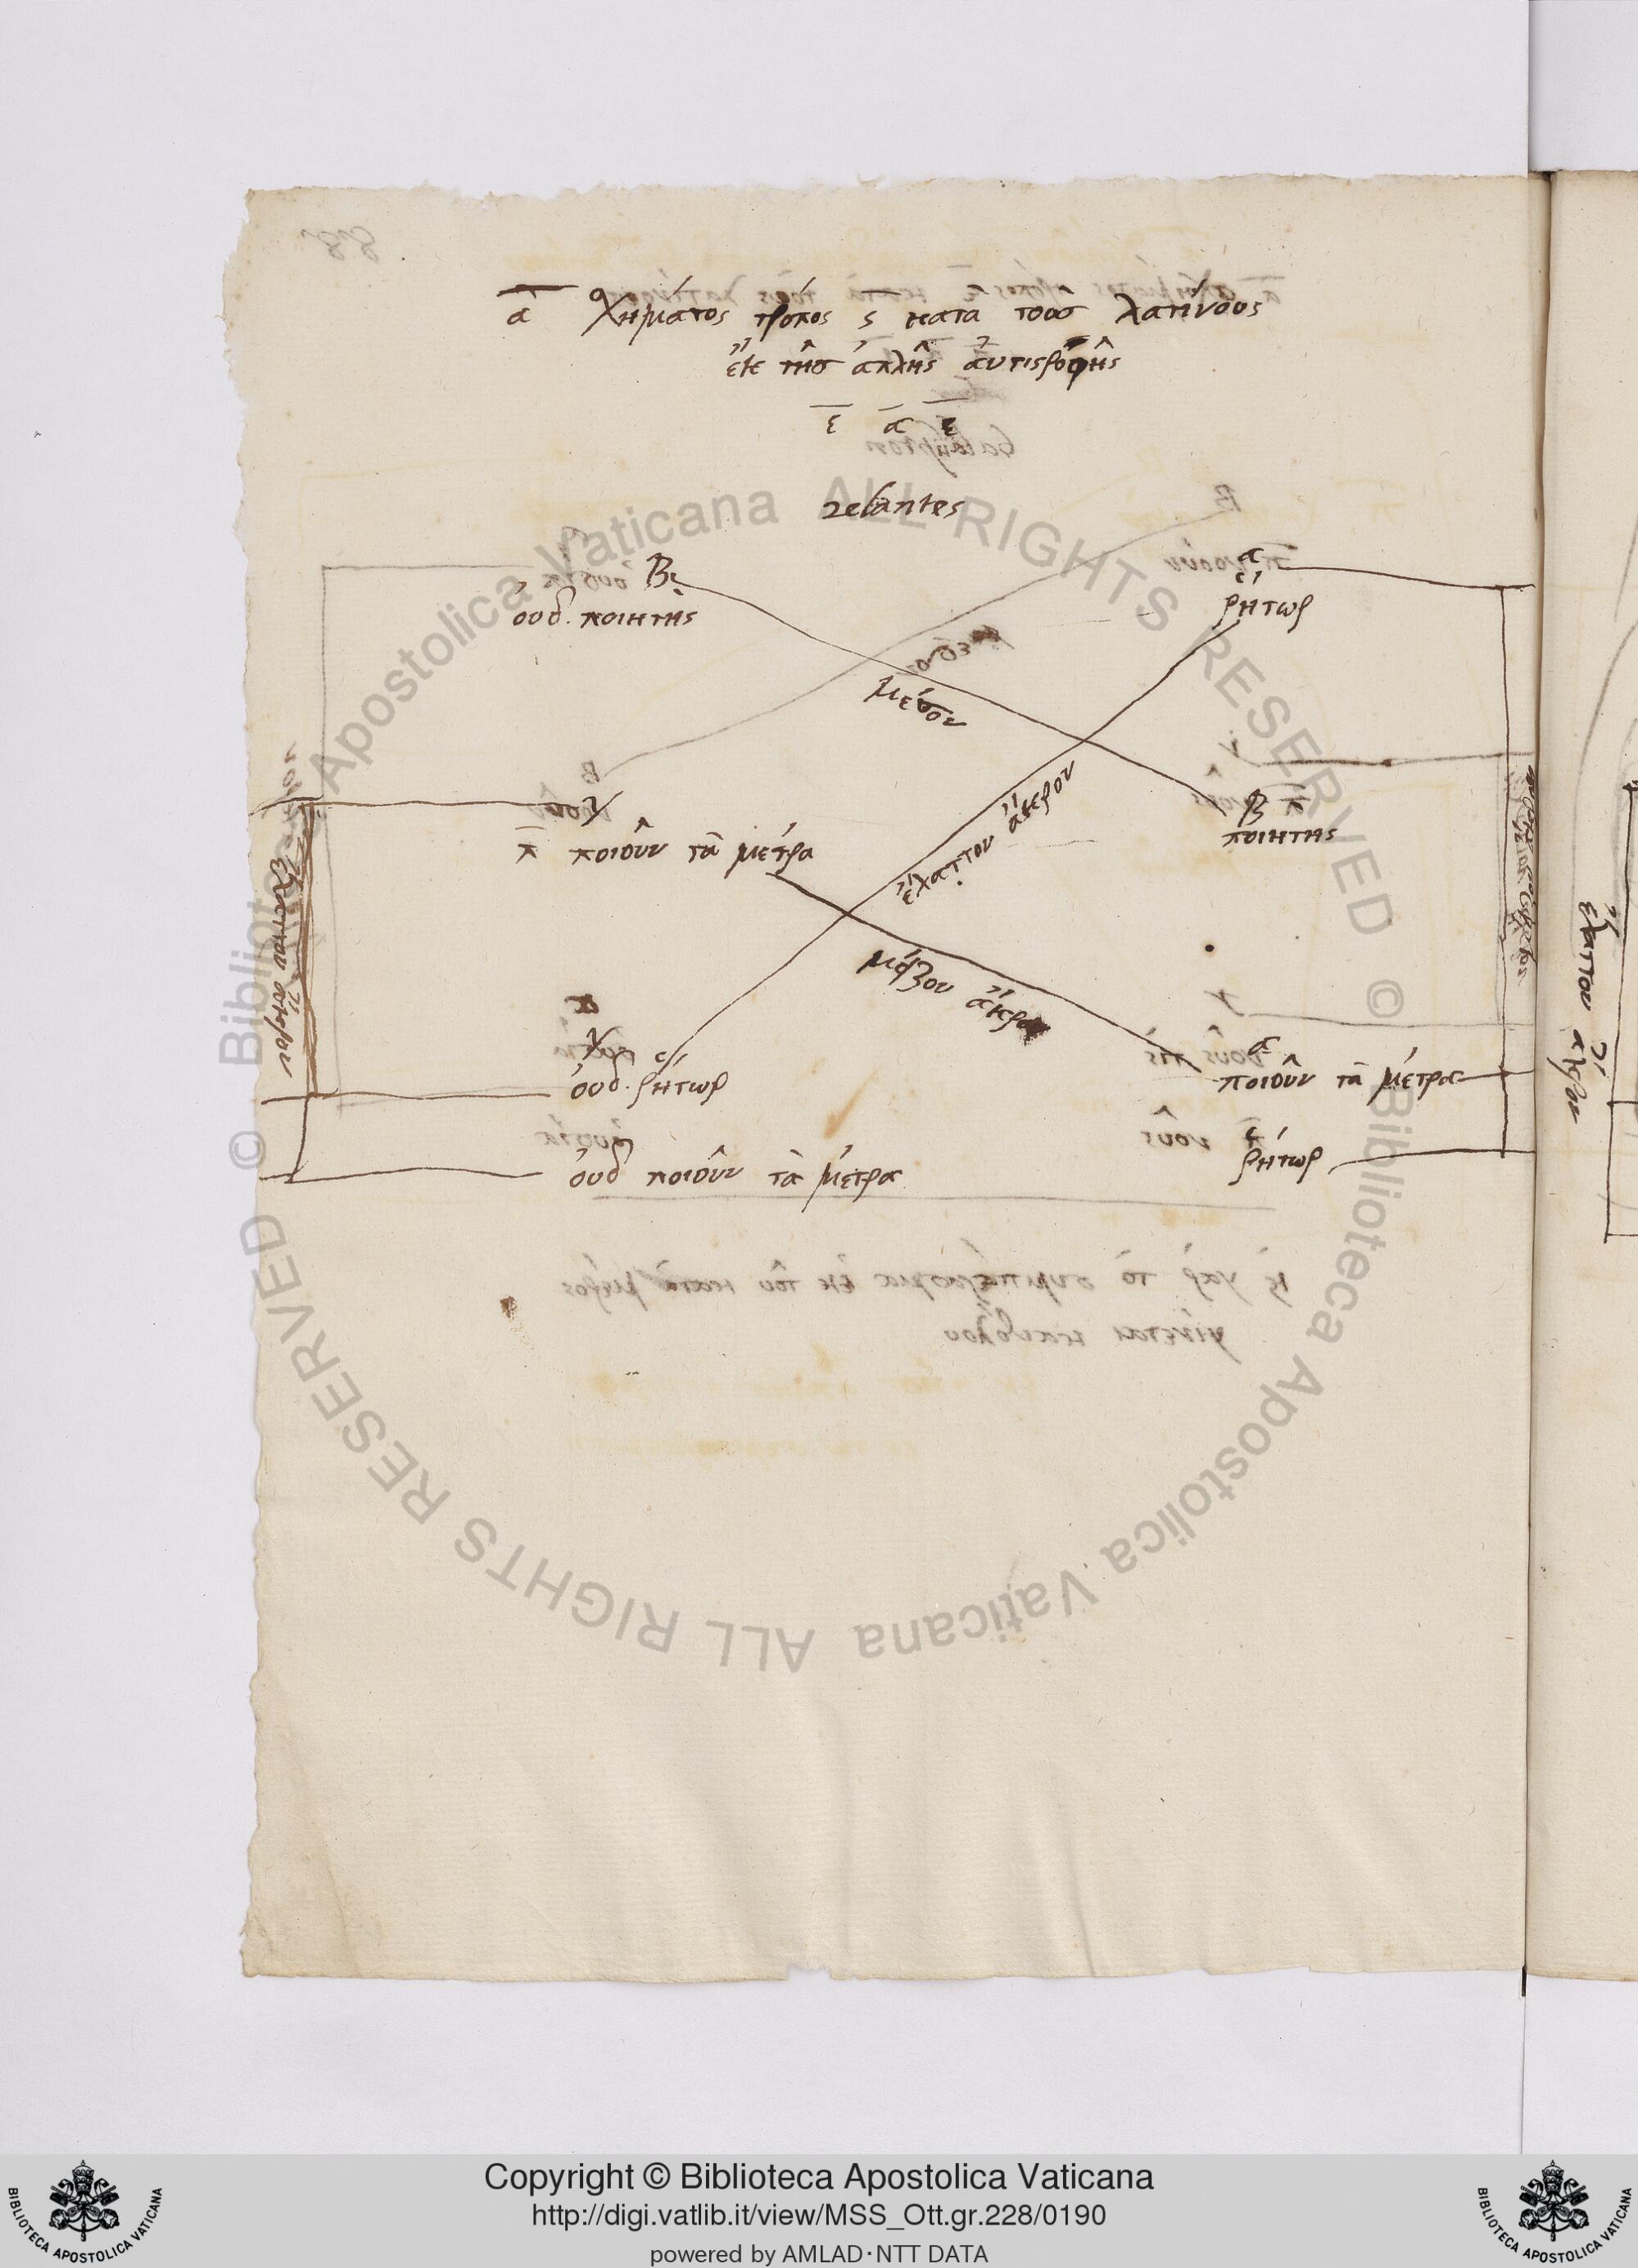 α σχήματος τρόπος ς κατὰ τοὺσ λατήνους
ἔκ τῆσ ἁπλῆς ἀντιστροφῆς
ε α ε
celantes
Β α
οὐδ. ποιητής ῥήτωρ
μέσον
γ β
π ποιοῦν τὰ μέτρα ποιητης
ἔλαττον ἄκρον
ἔλαττον ἄκρον
μεῖζον ἄκρον
γ α
οὐδ. ῥήτωρ ποιοῦν τὰ μέτρα
οὐδ ποιοῦν τὰ μέτρα ῥήτωρ
ἔλαττον ἄκρον
Biblioteca Apostolica Vaticana ALL RIGHTS RESERVED ©
Biblioteca Apostolica Vaticana ALL RIGHTS RESERVED ©
Copyright © Biblioteca Apostolica Vaticana
http://digi.vatlib.it/view/MSS_Ott.gr.228/0190
powered by AMLAD·NTT DATA
BIBLIOTECA APOSTOLICA VATICANA
BIBLIOTECA APOSTOLICA VATICANA